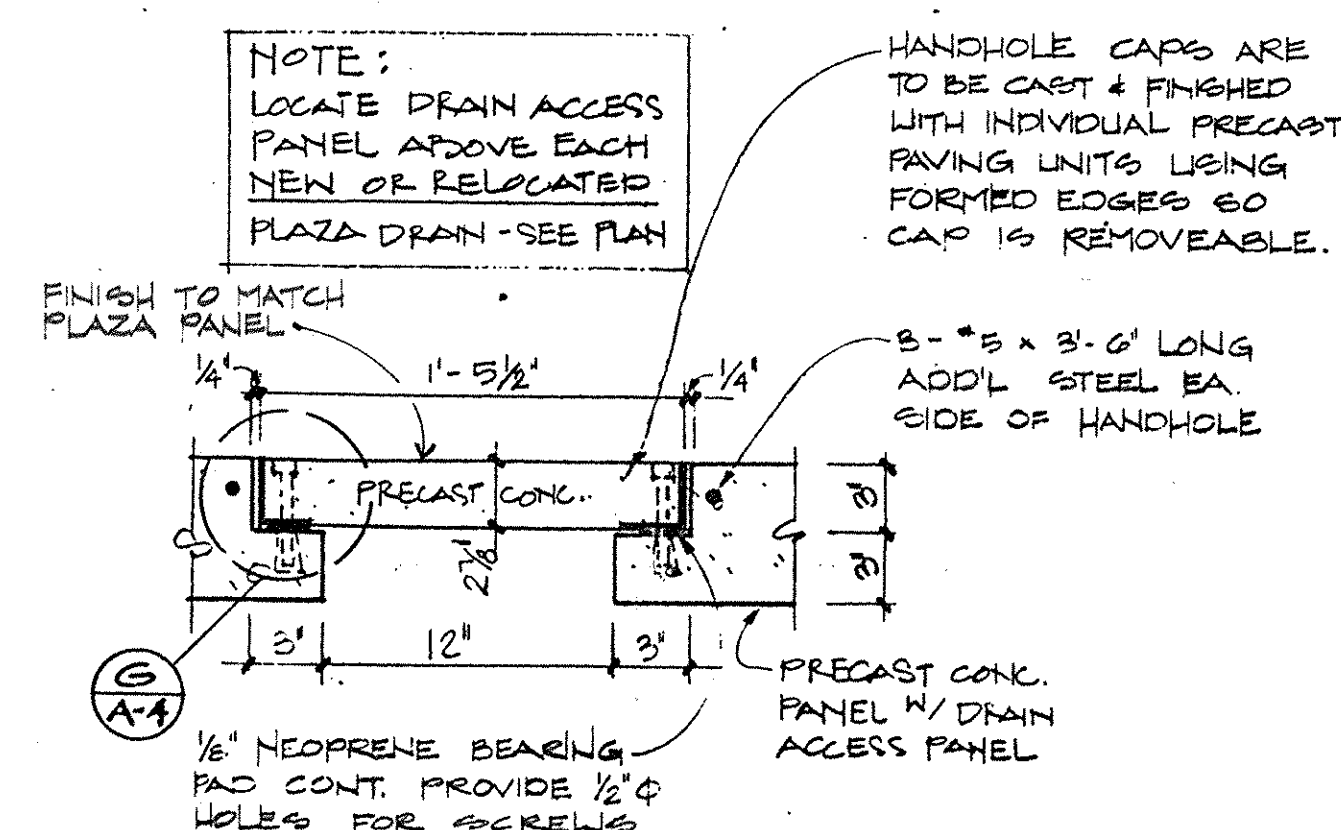 NOTE:
LOCATE DRAIN ACCESS
PANEL ABOVE EACH
NEW OR RELOCATED
PLAZA DRAIN - SEE PLAN
HANDHOLE CAPS ARE
TO BE CAST & FINISHED
WITH INDIVIDUAL PRECAST
PAVING UNITS USING
FORMED EDGES SO
CAP IS REMOVEABLE.
FINISH TO MATCH
PLAZA PANEL
1/4"
1'-5 1/2"
1/4"
3-#5 x 3'-6" LONG
ADD'L STEEL EA.
SIDE OF HANDHOLE
PRECAST CONC.
2 7/8"
3"
3"
3"
12"
3"
G
A-4
PRECAST CONC.
PANEL W/ DRAIN
ACCESS PANEL
1/8" NEOPRENE BEARING
PAD CONT. PROVIDE 1/2" Φ
HOLES FOR SCREWS